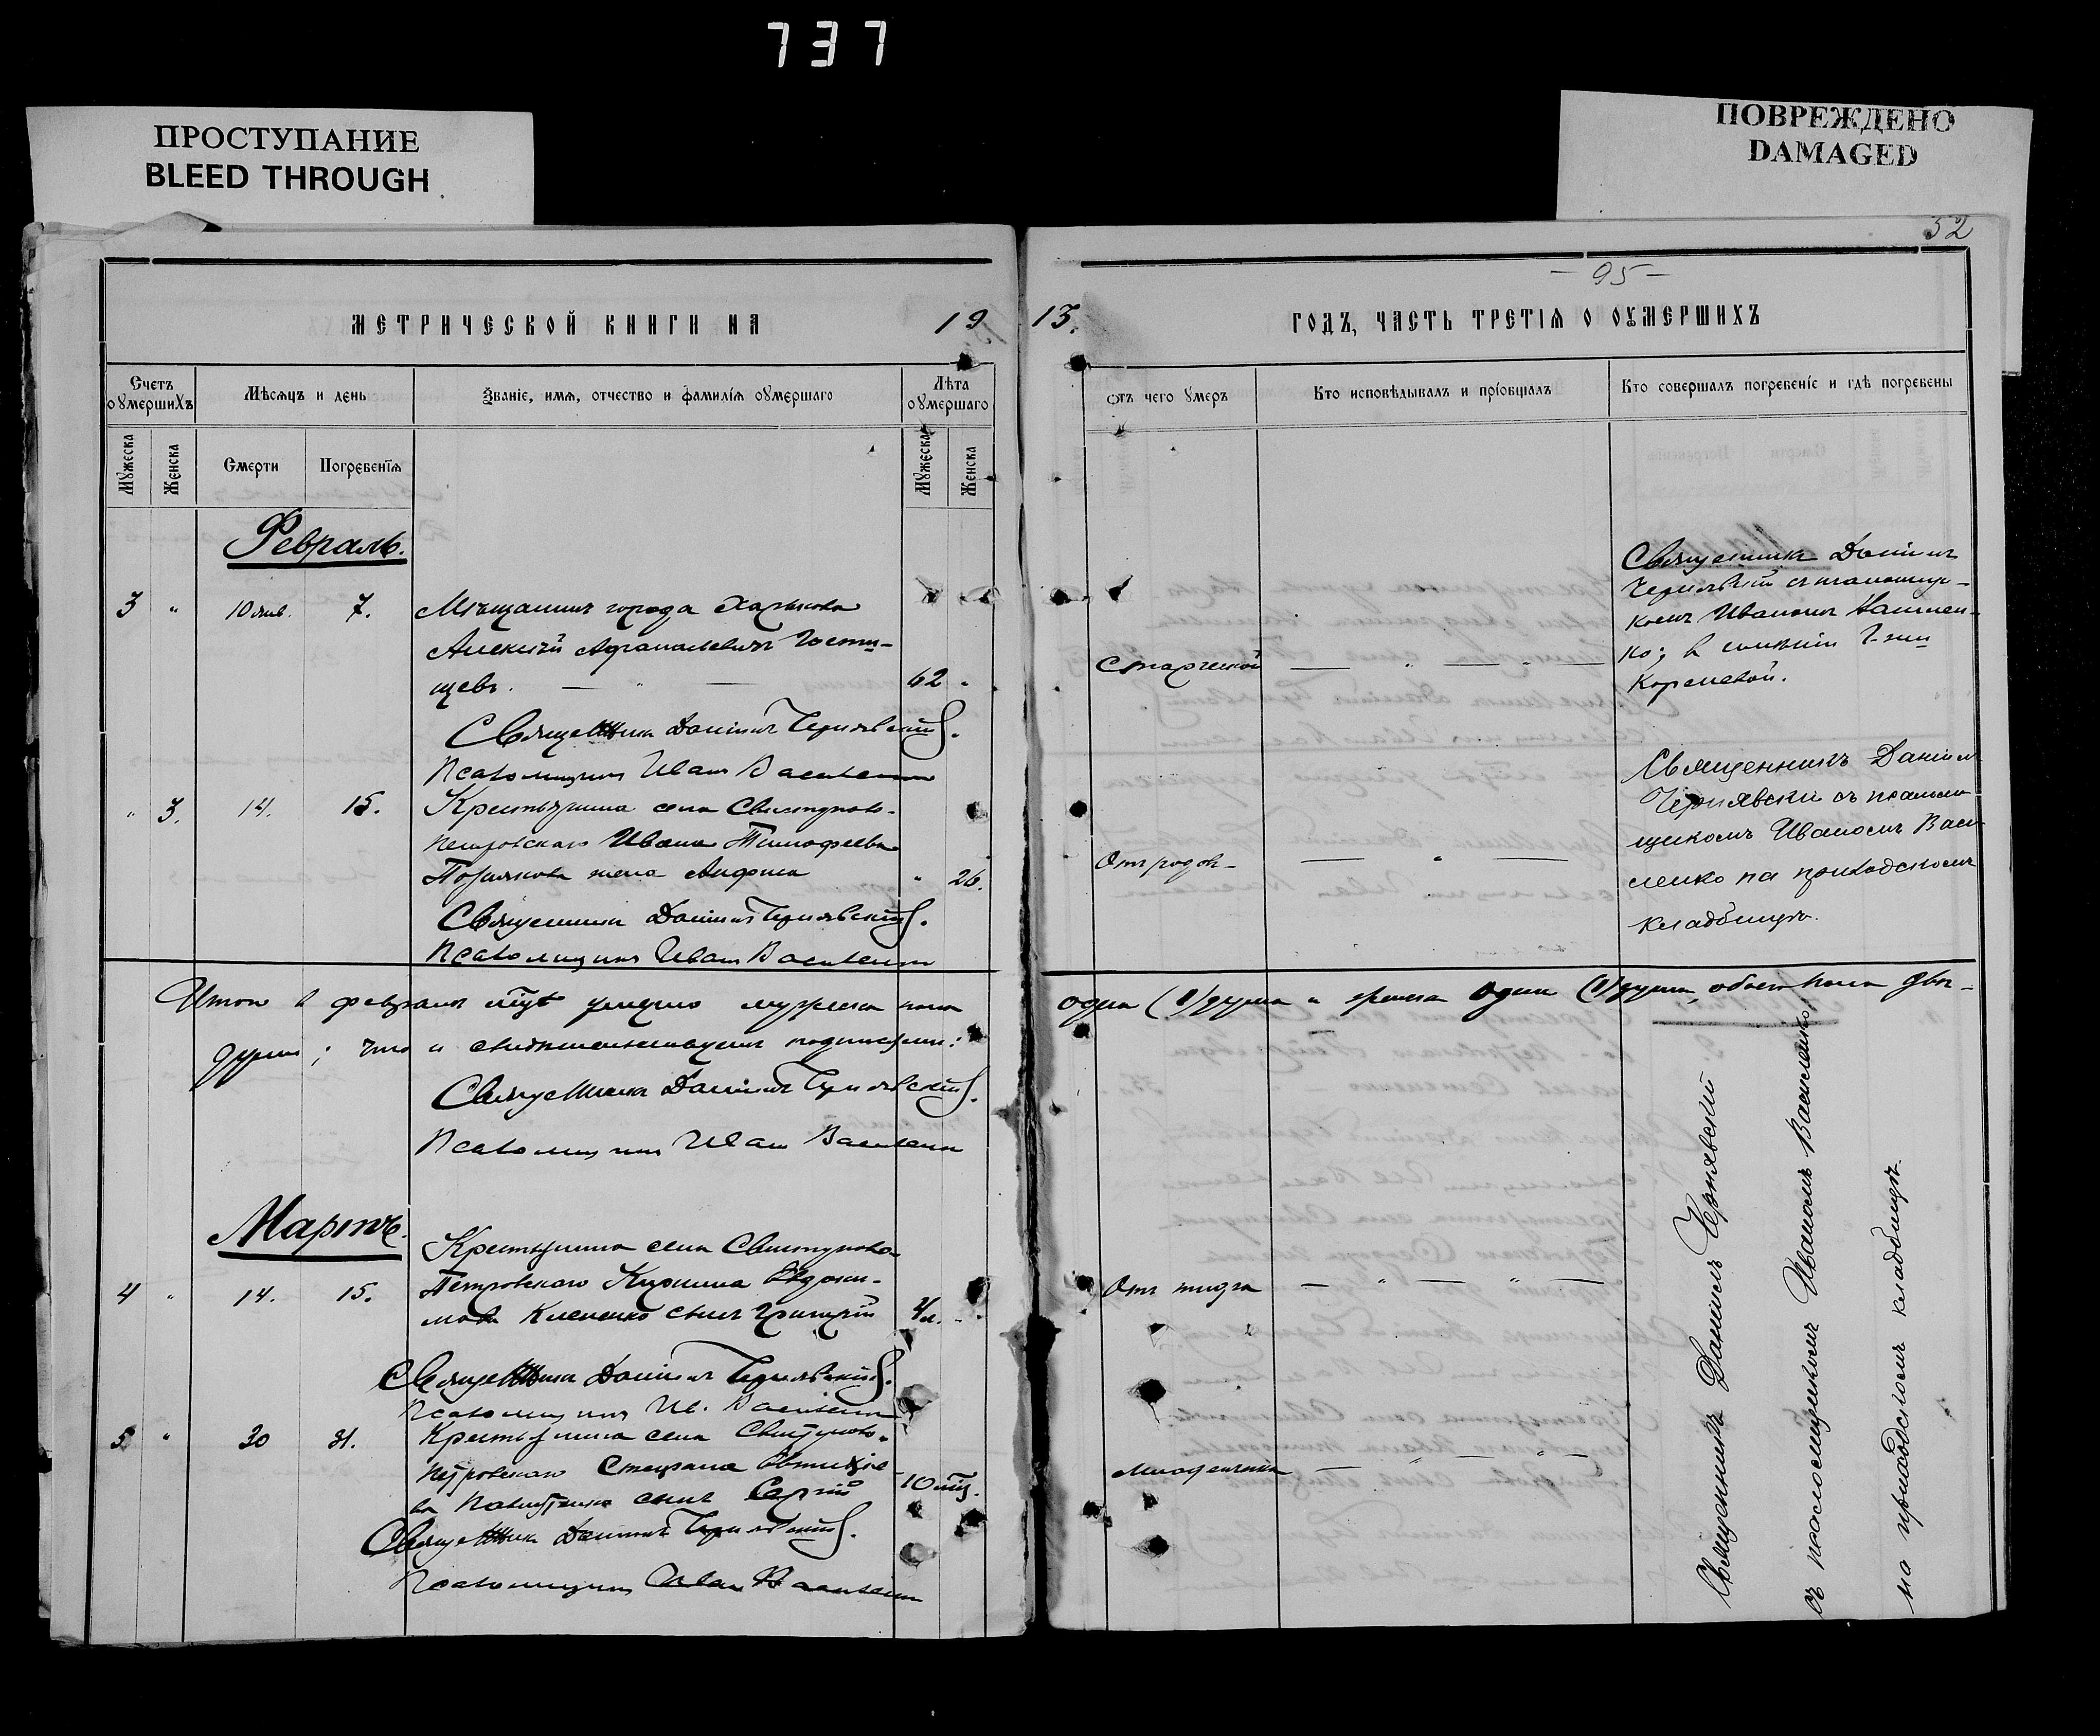 737
ПРОСТУПАНИЕ
BLEED THROUGH
ПОВРЕЖДЕНО
DAMAGED
32
- 95 -
МЕТРИЧЕСКОЙ КНИГИ НА 19
13. ГОДЪ, ЧАСТЬ ТРЕТІЯ О ОУМЕРШИХЪ
Счетъ оумершихъ
Мѣсяцъ и день
Званіе, имя, отчество и фамилія оумершаго
Лѣта оумершаго
отъ чего умеръ
Кто исповѣдывалъ и пріобщалъ
Кто совершалъ погребеніе и гдѣ погребены
Мужеска
Женска
Смерти
Погребенія
Мужеска
Женска
Февраль.
3 " 10 янв. 7.
Мѣщанинъ города Харькова
Алексѣй
щевъ. — " —
62 "
Старческой
— " — " —
Священникъ Даніилъ
Чернявскій съ псаломщи-
комъ Иваномъ Василен-
ко; в имѣніи Г-жи
Королевой.
Священникъ Даніилъ Чернявскій.
Псаломщикъ Иванъ Василенко
" 3. 14. 15.
Крестьянина села Свистуново-
Петровскаго Ивана Тимофеева
жена
" 26.
Отъ родов-
— " —
Священникъ Даніилъ
Чернявскій съ псалом-
щикомъ Иваномъ Васи-
ленко на приходскомъ
кладбищѣ.
Священникъ Даніилъ Чернявскій.
Псаломщикъ Иванъ Василенко
Итого в февралѣ мцѣ умерло мужеска пола одна (1) душа и женска одна (1) душа, обоего пола двѣ-
души; что и свидѣтельствуемъ подписями:
Священникъ Даніилъ Чернявскій.
Псаломщикъ Иванъ Василенко
Мартъ.
4 " 14. 15.
Крестьянина села Свистуново-
Петровскаго Евдоки-
мова Клеменко сынъ Григорій
"
— " — " —
Священникъ Даніилъ Чернявскій.
Псаломщикъ Ив. Василенко
5 " 30 31.
Крестьянина села Свистуново-
Петровскаго Стефана
сынъ Сергій
10 мц.
— " —
Священникъ Даніилъ Чернявскій.
Псаломщикъ Иванъ Василенко
Священникъ Даніилъ Чернявскій
съ псаломщикомъ Иваномъ Василенко
на приходскомъ кладбищѣ.